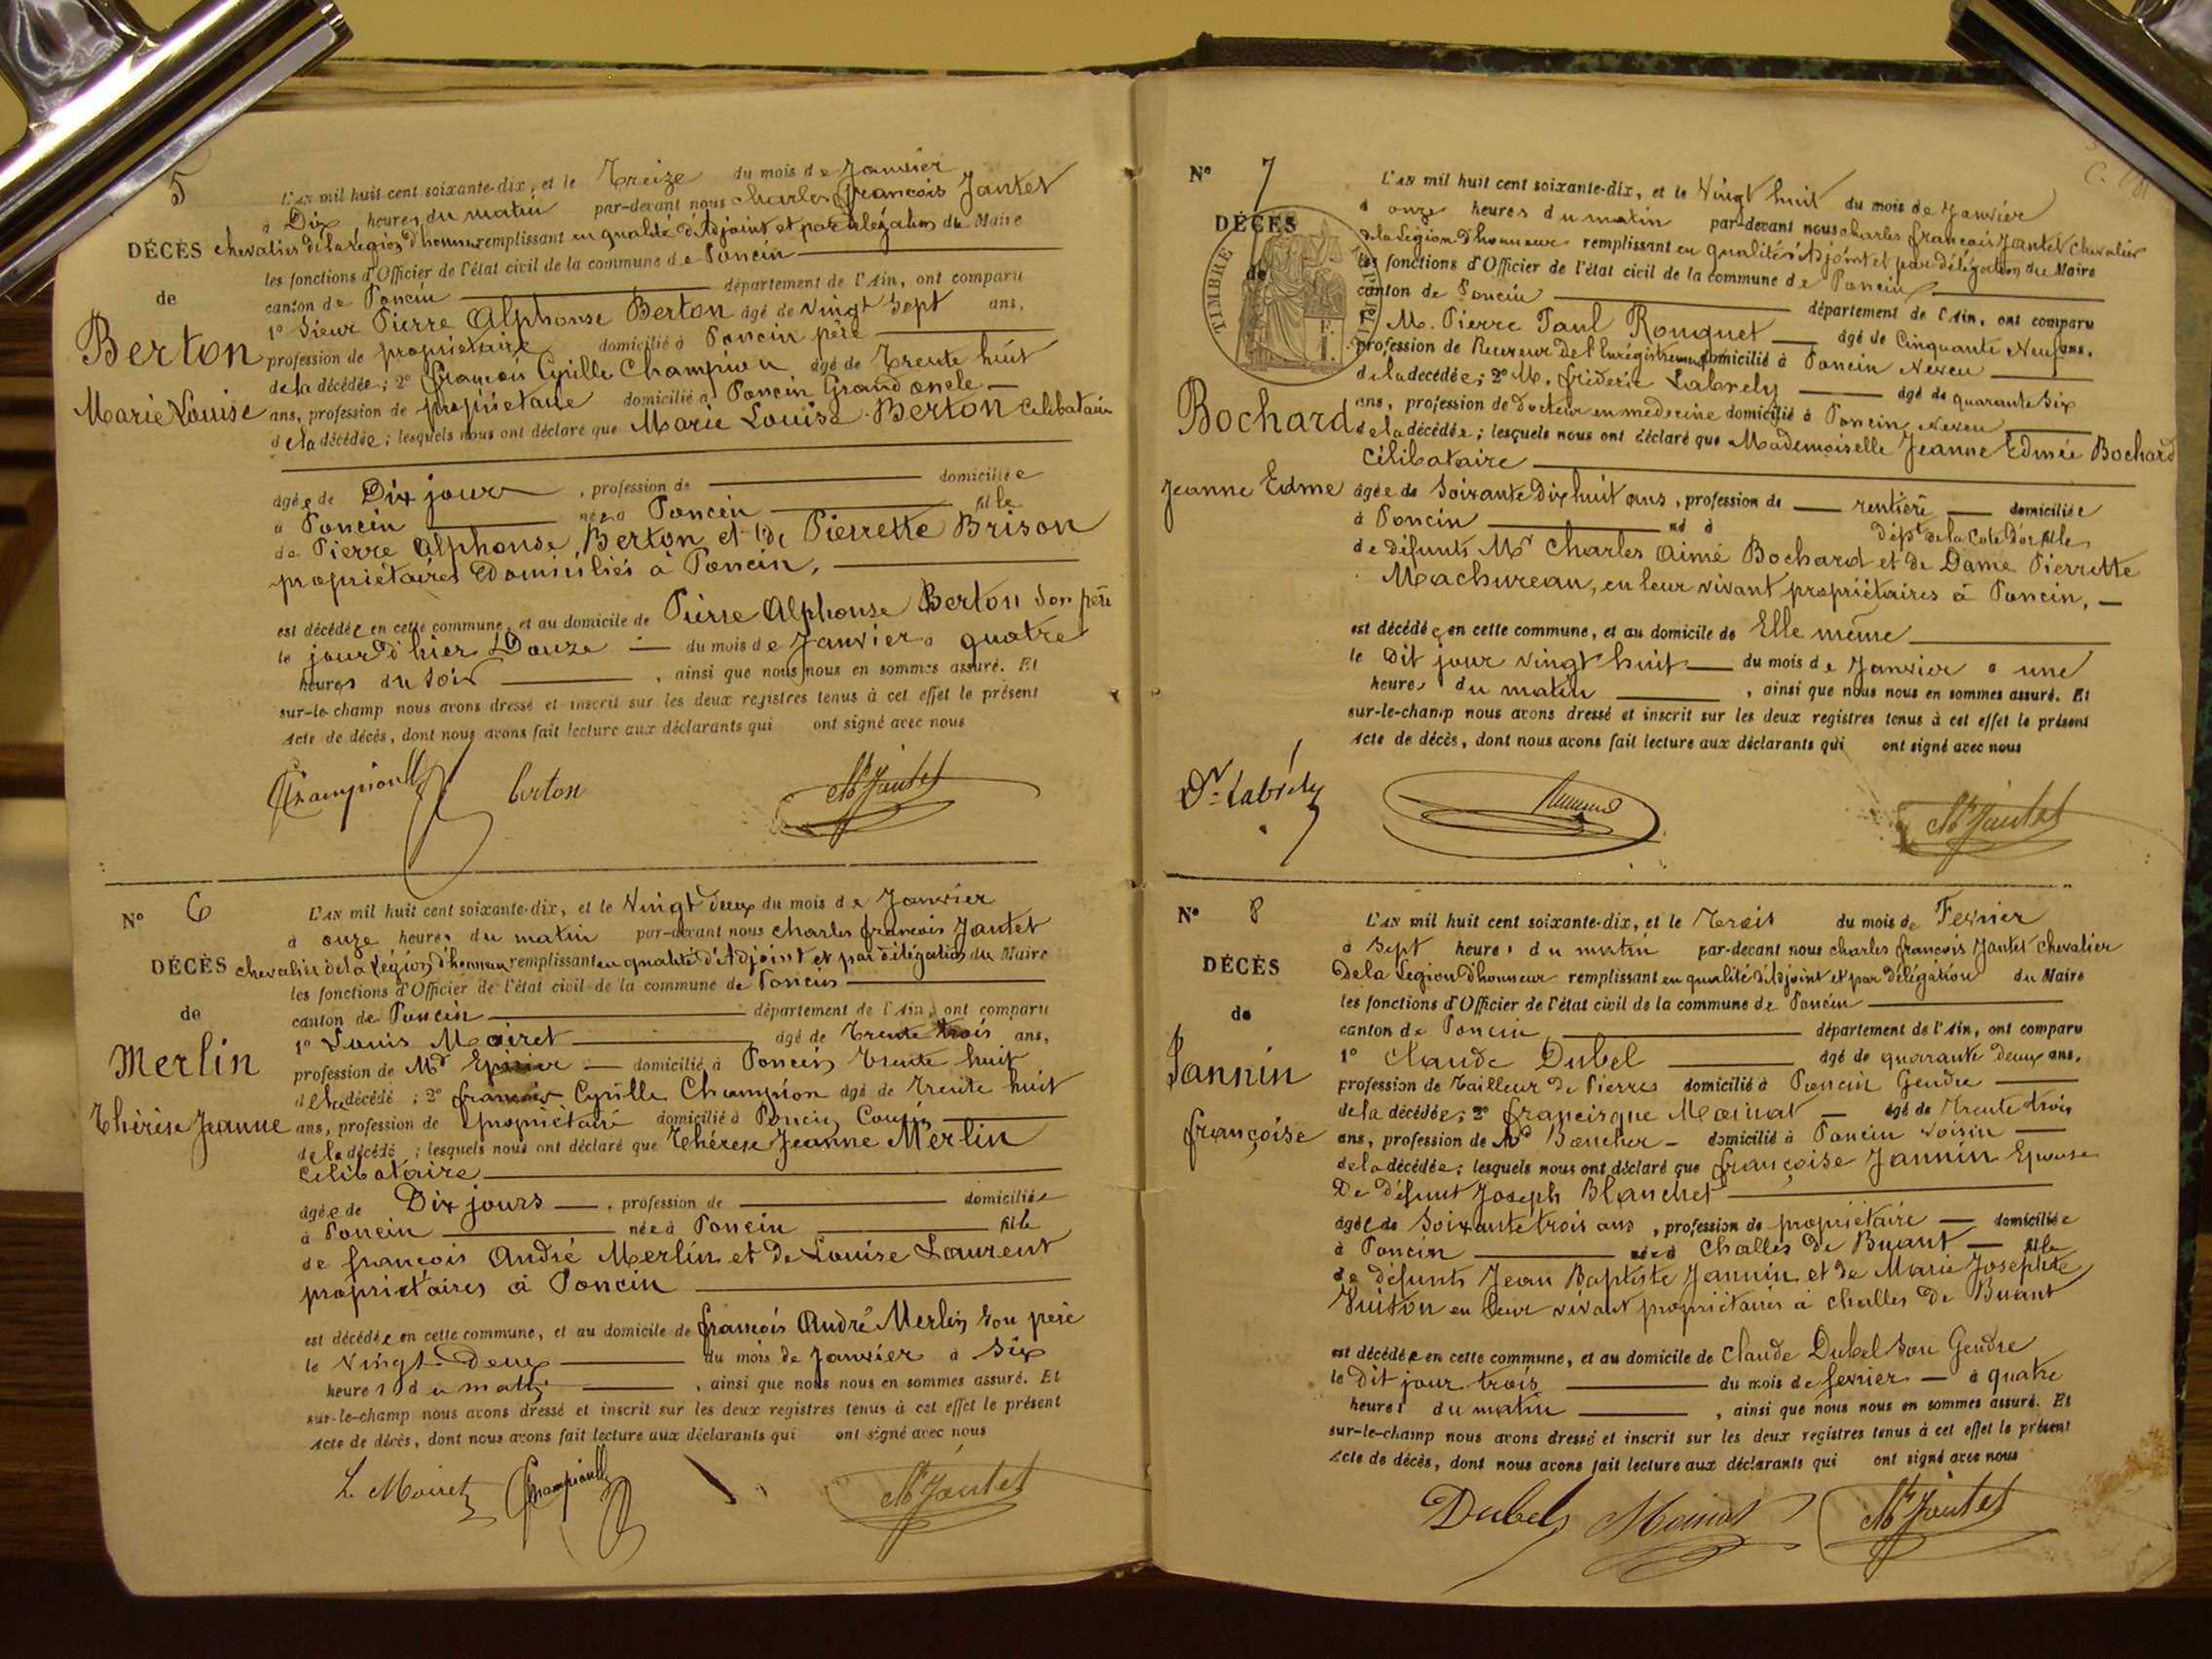 5
L'AN mil huit cent soixante-dix, et le Treize du mois de Janvier
à Dix heures du matin par-devant nous charles françois Jantet
DÉCÈS chevalier de la Légion d'honneur remplissant en qualité d'Adjoint et par délégation du Maire
les fonctions d'Officier de l'état civil de la commune de Poncin
de
canton de Poncin département de l'Ain, ont comparu
1° Sieur Pierre Alphonse Berton âgé de vingt Sept ans,
Berton
profession de propriétaire domicilié à Poncin père
de la décédée; 2° françois Cyrille Champion âgé de Trente huit
Marie Louise
ans, profession de propriétaire domicilié à Poncin Grand oncle
de la décédée; lesquels nous ont déclaré que Marie Louise Berton Celibataire
âgée de Dix jours, profession de domiciliée
à Poncin née à Poncin fille
de Pierre Alphonse Berton et de Pierrette Brison
propriétaires Domiciliés à Poncin,
est décédée en cette commune, et au domicile de Pierre Alphonse Berton son père
le jour d'hier Douze du mois de Janvier à quatre
heures du soir, ainsi que nous nous en sommes assuré. Et
sur-le-champ nous avons dressé et inscrit sur les deux registres tenus à cet effet le présent
Acte de décès, dont nous avons fait lecture aux déclarants qui ont signé avec nous
Champion Berton Ch Jantet
N° 6
L'AN mil huit cent soixante-dix, et le Vingt deux du mois de Janvier
à onze heures du matin par-devant nous charles françois Jantet
DÉCÈS chevalier de la Légion d'honneur remplissant en qualité d'Adjoint et par délégation du Maire
les fonctions d'Officier de l'état civil de la commune de Poncin
de
canton de Poncin département de l'Ain, ont comparu
1° Louis Moiret âgé de Trente trois ans,
Merlin
profession de Md Epicier domicilié à Poncin Trente huit
de la décédé; 2° françois Cyrille Champion âgé de Trente huit
Thérèse Jeanne
ans, profession de propriétaire domicilié à Poncin Cousin
de la décédé; lesquels nous ont déclaré que Thérèse Jeanne Merlin
Celibataire
âgée de Dix jours, profession de domiciliée
à Poncin née à Poncin fille
de françois André Merlin et de Louise Laurent
propriétaires à Poncin
est décédée en cette commune, et au domicile de françois André Merlin son père
le Vingt Deux du mois de Janvier à Six
heures du matin, ainsi que nous nous en sommes assuré. Et
sur-le-champ nous avons dressé et inscrit sur les deux registres tenus à cet effet le présent
Acte de décès, dont nous avons fait lecture aux déclarants qui ont signé avec nous
L. Moiret Champion Ch Jantet
N° 7
L'AN mil huit cent soixante-dix, et le Vingt huit du mois de Janvier
à onze heures du matin par-devant nous charles françois Jantet Chevalier
DÉCÈS
de la Légion d'honneur remplissant en qualité d'Adjoint et par délégation du Maire
de
TIMBRE
les fonctions d'Officier de l'état civil de la commune de Poncin
canton de Poncin département de l'Ain, ont comparu
M. Pierre Paul Rouquet âgé de Cinquante Neuf ans,
profession de Receveur de l'Enregistrement domicilié à Poncin Neveu
de la décédée; 2° M. fréderic Labrely âgé de quarante Six
Bochard
ans, profession de Docteur en medecine domicilié à Poncin Neveu
de la décédée; lesquels nous ont déclaré que Mademoiselle Jeanne Edmée Bochard
Célibataire
Jeanne Edme
âgée de Soixante Dix huit ans, profession de rentière domiciliée
à Poncin né à Dépt de la Cote d'or fille
de défunts Mr Charles Aimé Bochard et de Dame Pierrette
Machureau, en leur vivant propriétaires à Poncin,
est décédée en cette commune, et au domicile de Elle même
le Dit jour vingt huit du mois de Janvier à une
heures du matin, ainsi que nous nous en sommes assuré. Et
sur-le-champ nous avons dressé et inscrit sur les deux registres tenus à cet effet le présent
Acte de décès, dont nous avons fait lecture aux déclarants qui ont signé avec nous
Dr Labrély Ch Jantet
N° 8
L'AN mil huit cent soixante-dix, et le Trois du mois de Fevrier
à Sept heures du matin par-devant nous charles françois Jantet chevalier
DÉCÈS
De la Legion d'honneur remplissant en qualité d'Adjoint et par délégation du Maire
les fonctions d'Officier de l'état civil de la commune de Poncin
de
canton de Poncin département de l'Ain, ont comparu
1° Claude Dubel âgé de quarante Deux ans,
Jannin
profession de Tailleur de Pierres domicilié à Poncin Gendre
de la décédée; 2° francisque Moinat âgé de Trente trois
françoise
ans, profession de Md Boucher domicilié à Poncin voisin
de la décédée; lesquels nous ont déclaré que françoise Jannin Epouse
De défunt Joseph Blanchet
âgée de Soixante trois ans, profession de propriétaire domiciliée
à Poncin née à Challes de Buant fille
de défunts Jean Baptiste Jannin et de Marie Josephte
Vuiton en leur vivant propriétaires à Challes De Buant
est décédée en cette commune, et au domicile de Claude Dubel son Gendre
le Dit jour trois du mois de fevrier à quatre
heures du matin, ainsi que nous nous en sommes assuré. Et
sur-le-champ nous avons dressé et inscrit sur les deux registres tenus à cet effet le présent
Acte de décès, dont nous avons fait lecture aux déclarants qui ont signé avec nous
Dubel Moinat Ch Jantet